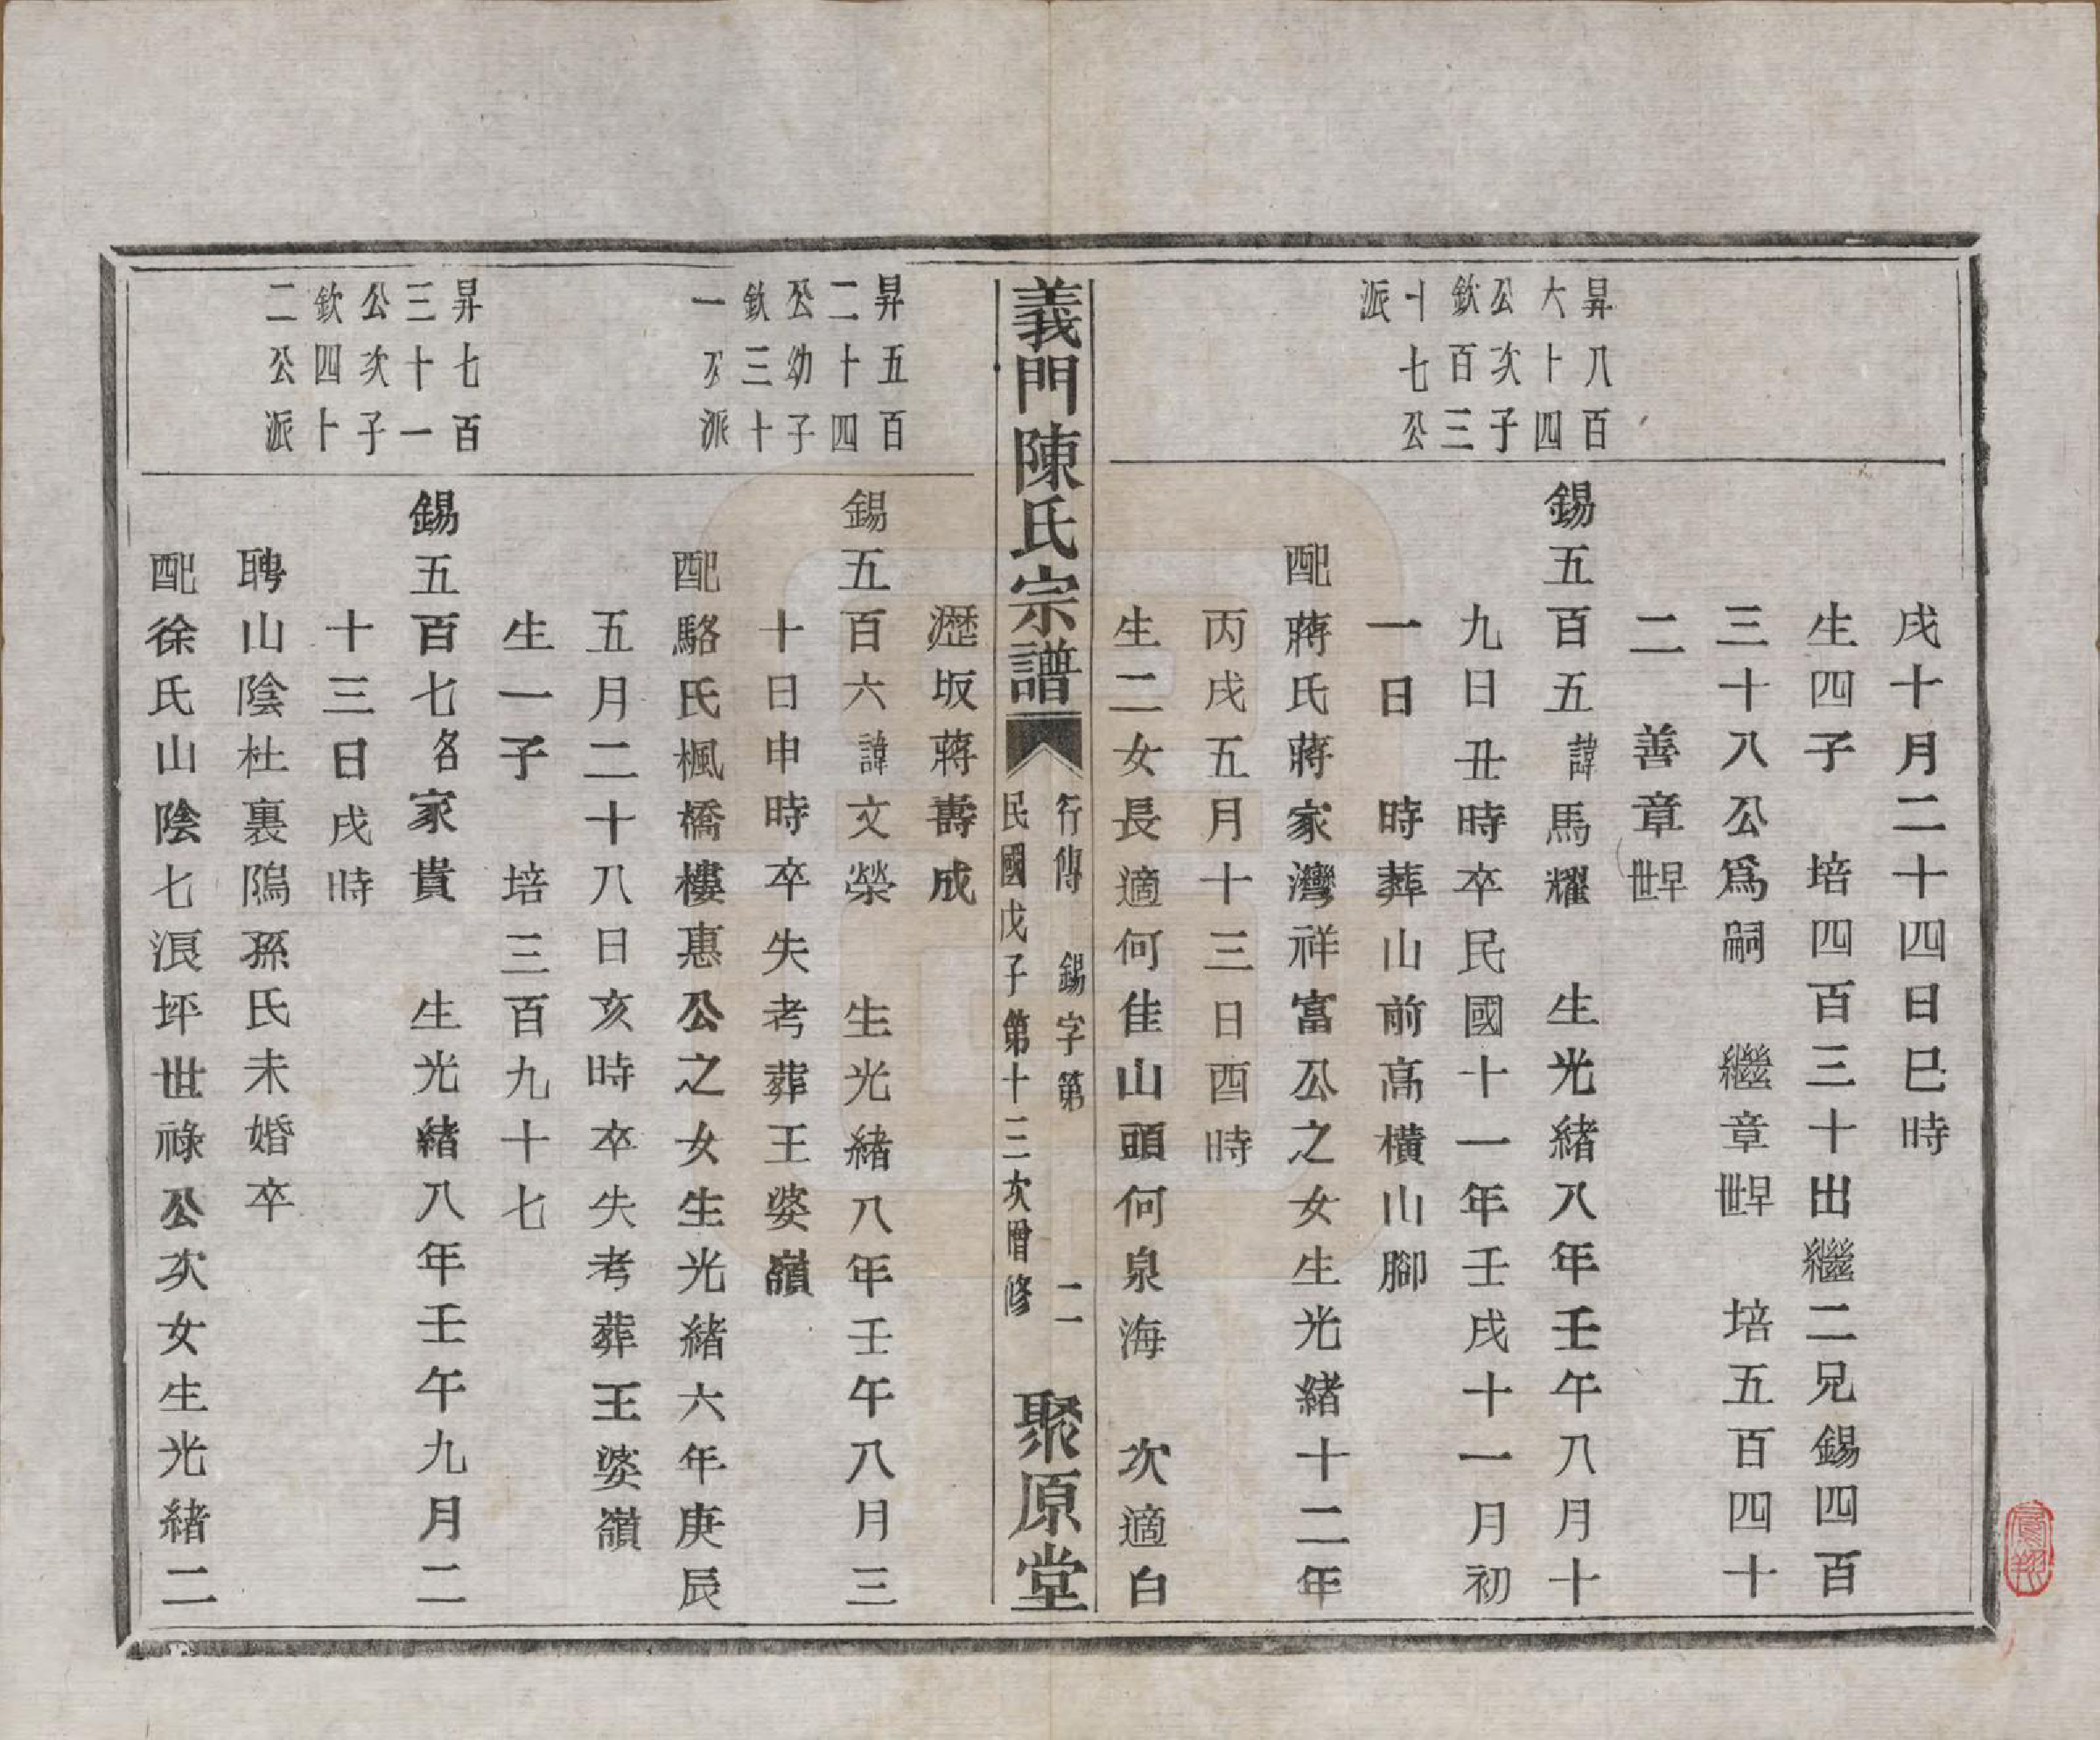 戌十月二十四日巳時
生四子 培四百三十出繼二兄錫四百
三十八公爲嗣 繼章世早 培五百四十
二 善章世早
昇八百
六十四
公次子
欽百三
十七公
派
錫五百五諱馬耀 生光緒八年壬午八月十
九日丑時卒民國十一年壬戌十一月初
一日 時葬山前高橫山腳
配蔣氏蔣家灣祥富公之女生光緒十二年
丙戌五月十三日酉時
生二女長適何佳山頭何泉海 次適白
義門陳氏宗譜
行傳 錫字第 二
民國戊子第十三次增修
聚原堂
瀝坂蔣壽成
昇五百
二十四
公幼子
欽三十
一公派
錫五百六諱文榮 生光緒八年壬午八月三
十日申時卒失考葬王婆嶺
配駱氏楓橋樓惠公之女生光緒六年庚辰
五月二十八日亥時卒失考葬王婆嶺
生一子 培三百九十七
昇七百
三十一
公次子
欽四十
二公派
錫五百七名家貴 生光緒八年壬午九月二
十三日戌時
聘山陰杜裏隖孫氏未婚卒
配徐氏山陰七浪坪世祿公次女生光緒二